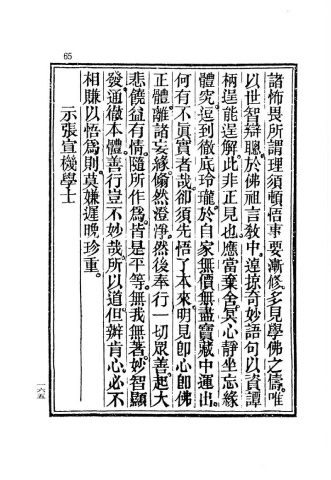 65
諸怖畏所謂理須頓悟事要漸修多見學佛之儔唯
以世智辯聰於佛祖言教中遑掠奇妙語句以資譚
柄逞能逞解此非正見也應當棄舍冥心靜坐忘緣
體究逗到徹底玲瓏於自家無價無盡寶藏中運出
何有不眞實者哉卻須先悟了本來明見即心即佛
正體離諸妄緣翛然澄淨然後奉行一切眾善起大
悲饒益有情隨所作爲皆是平等無我無著妙智顯
發通徹本體善行豈不妙哉所以道但辦肯心必不
相賺以悟爲則莫嫌遲晚珍重
示張宣機學士
一六五